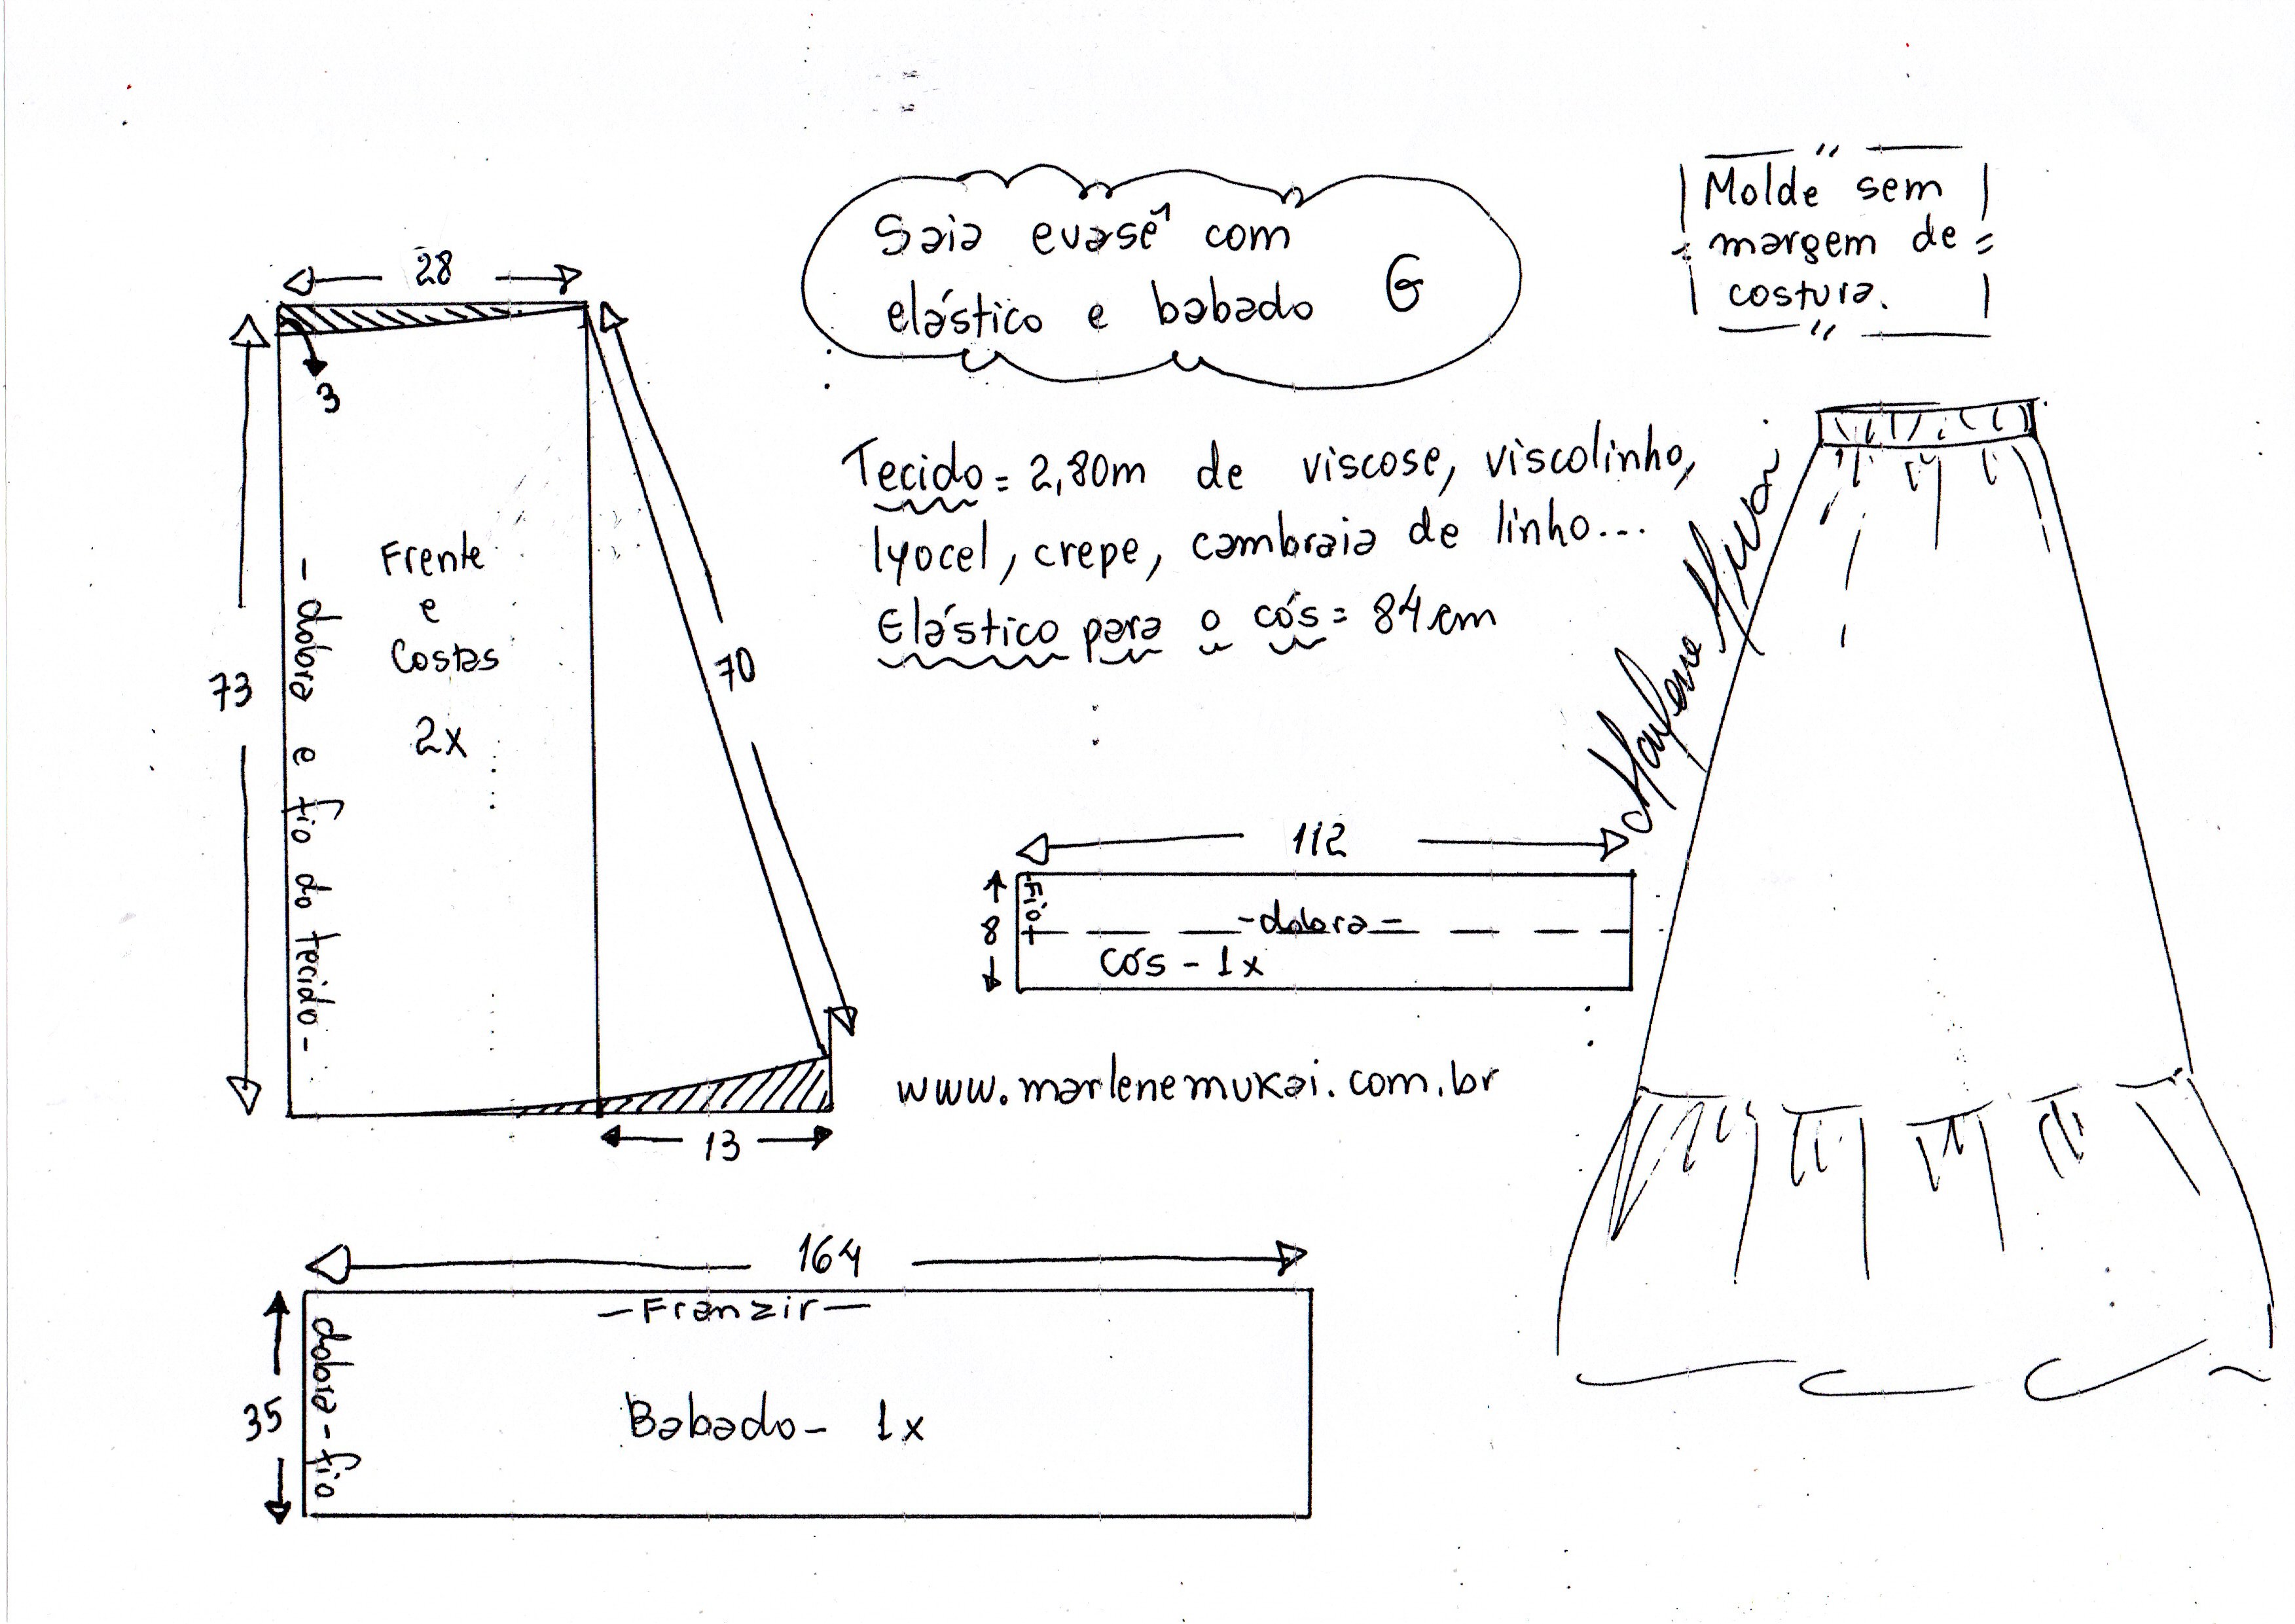 Saia evasê com
elástico e babado G
Molde sem
margem de
costura.
28
3
73
70
- dobra e fio do tecido -
Frente
e
Costas
2x
13
Tecido = 2,80m de viscose, viscolinho,
lyocel, crepe, cambraia de linho...
Elástico para o cós = 84cm
Marlene Mukai
112
8
Fio
- dobra =
Cós - 1x
www.marlenemukai.com.br
164
- Franzir -
35
dobra - fio
Babado - 1x